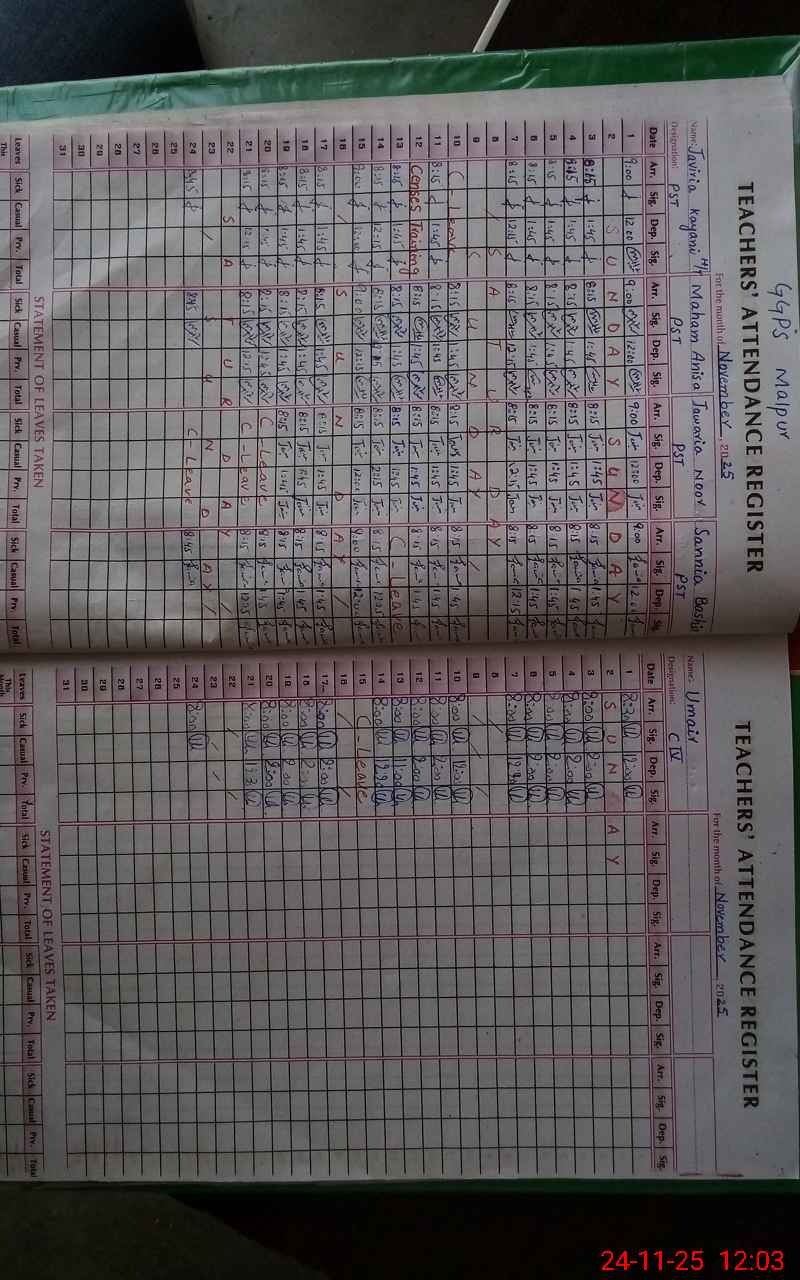 GGPS Malpur
TEACHERS' ATTENDANCE REGISTER
For the month of November, 2025
Name: Javiria Kayani H/t Maham Anisa Jawaria Noor Sannia Bashir
Designation: PST PST PST PST
Date Arr. Sig. Dep. Sig. Arr. Sig. Dep. Sig. Arr. Sig. Dep. Sig. Arr. Sig. Dep. Sig.
1 9:00 12:00 9:00 12:00 9:00 12:00 9:00 12:00
2 SUNDAY SUNDAY
3 8:15 1:45 8:15 1:45 8:15 1:45 8:15 1:45
4 8:15 1:45 8:15 1:45 8:15 1:45 8:15 1:45
5 8:15 1:45 8:15 1:45 8:15 1:45 8:15 1:45
6 8:15 1:45 8:15 1:45 8:15 1:45 8:15 1:45
7 8:15 12:15 8:15 12:15 8:15 12:15 8:15 12:15
8 SATURDAY
9 SUNDAY
10 C-Leave 8:15 1:45 8:15 1:45 8:15 1:45
11 8:15 1:45 8:15 1:45 8:15 1:45 8:15 1:45
12 Censes Training 8:15 1:45 8:15 1:45 8:15 1:45
13 8:15 1:45 8:15 1:45 8:15 1:45 C-Leave
14 8:15 12:15 8:15 8:15 8:15
15 9:00 12:00 9:00 8:15 12:00 9:00 12:00
16 SUNDAY
17 8:15 1:45 8:15 1:45 8:15 1:45 8:15 1:45
18 8:15 1:45 8:15 1:45 8:15 1:45 8:15 1:45
19 8:15 1:45 8:15 1:45 8:15 1:45 8:15 1:45
20 8:15 8:15 1:45 C-Leave 8:15
21 8:15 12:15 8:15 12:15 C-Leave 8:15
22 SATURDAY
23 SUNDAY
24 8:45 8:45 C-Leave 8:45
25
26
27
28
29
30
31
STATEMENT OF LEAVES TAKEN
Leaves Sick Casual Prv. Total Sick Casual Prv. Total Sick Casual Prv. Total Sick Casual Prv. Total
This
TEACHERS' ATTENDANCE REGISTER
For the month of November, 2025
Name: Umair
Designation: C IV
Date Arr. Sig. Dep. Sig. Arr. Sig. Dep. Sig. Arr. Sig. Dep. Sig. Arr. Sig. Dep. Sig.
1 12:00
2 SUNDAY
3 8:00 2:00
4 8:00 2:00
5 8:00 2:00
6 8:00 2:00
7 8:00 12:30
8
9
10 8:00
11 8:00 2:00
12 8:00 2:00
13 8:00
14 8:00
15 C-Leave
16
17 8:00 2:00
18 8:00 2:00
19 8:00 2:00
20 8:00 2:00
21
22
23
24 8:00
25
26
27
28
29
30
31
STATEMENT OF LEAVES TAKEN
Leaves Sick Casual Prv. Total Sick Casual Prv. Total Sick Casual Prv. Total Sick Casual Prv. Total
This
24-11-25 12:03